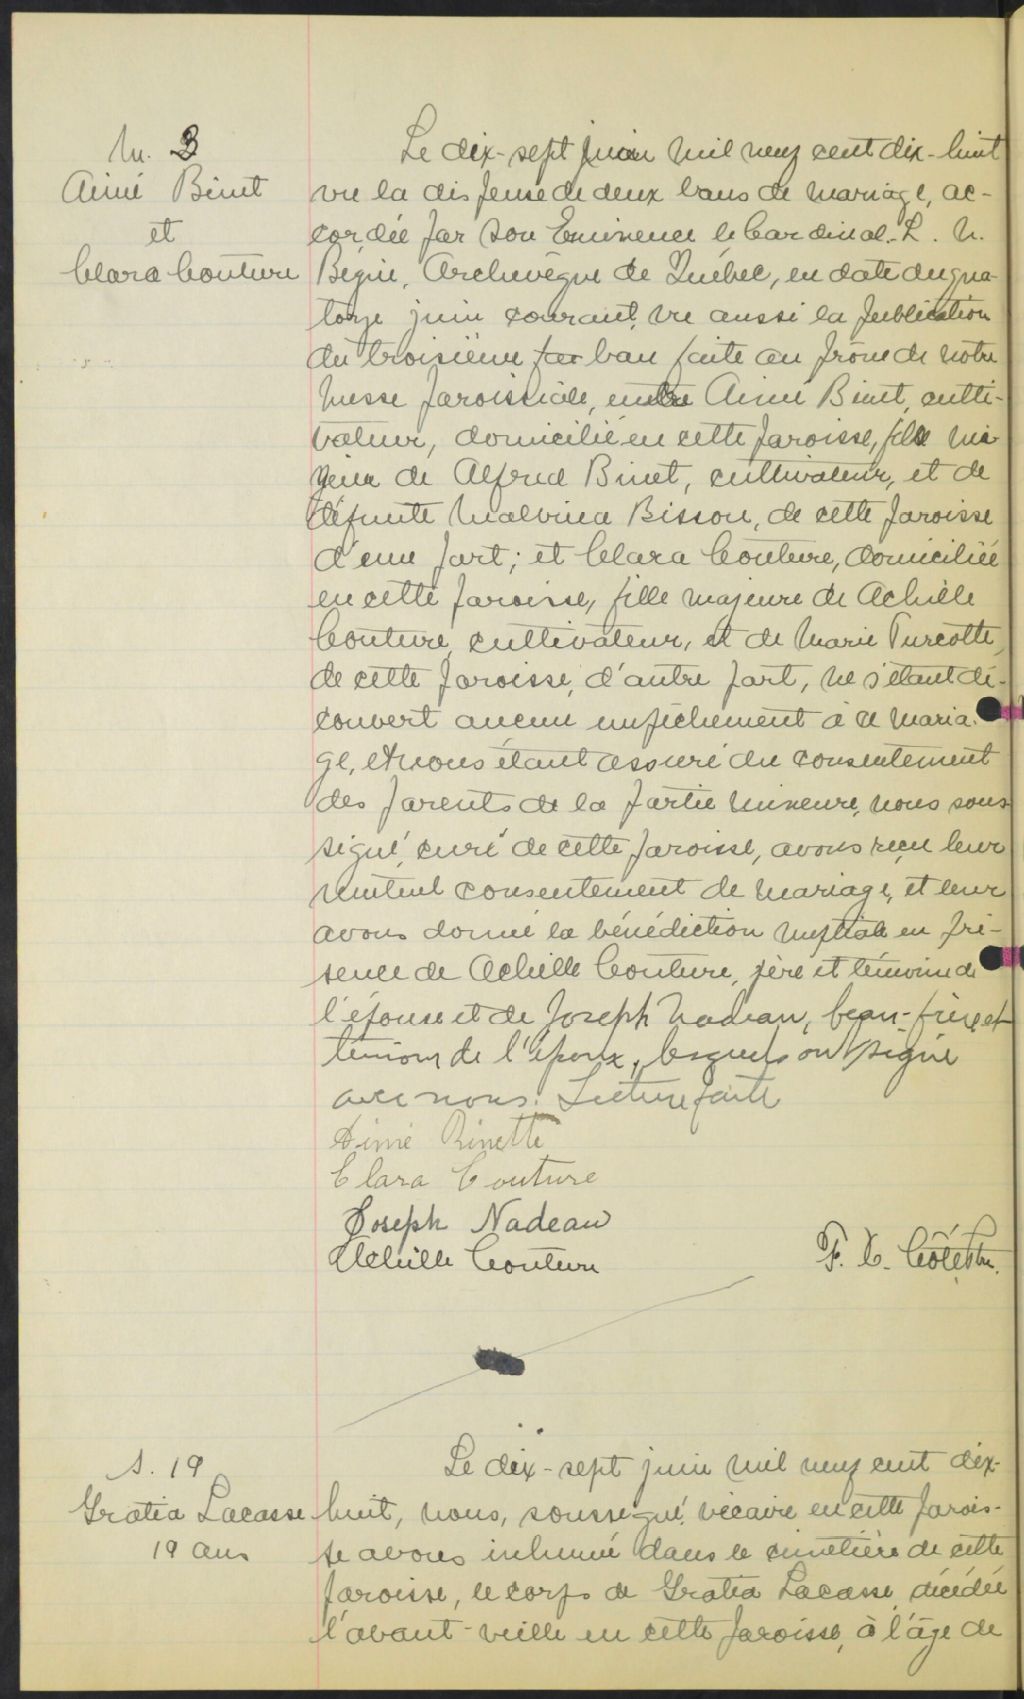 M. 3
Aimé Binet
et
Clara Couture
Le dix-sept juin mil neuf cent dix-huit
vu la dispense de deux bans de mariage, ac-
cordée par Son Eminence le Cardinal L. N.
Bégin, Archevêque de Québec, en date du qua-
torze juin courant, vu aussi la publication
du troisième ban faite au prône de notre
messe paroissiale, entre Aimé Binet, culti-
vateur, domicilié en cette paroisse, fils mi-
neur de Alfred Binet, cultivateur, et de
défunte Malvina Bisson, de cette paroisse
d'une part; et Clara Couture, domiciliée
en cette paroisse, fille majeure de Achille
Couture, cultivateur, et de Marie Turcotte,
de cette paroisse, d'autre part, ne s'étant dé-
couvert aucun empêchement à ce maria-
ge, et nous étant assuré du consentement
des parents de la partie mineure, nous sous-
signé, curé de cette paroisse, avons reçu leur
mutuel consentement de mariage, et leur
avons donné la bénédiction nuptiale en pré-
sence de Achille Couture, père et témoin de
l'épouse et de Joseph Nadeau, beau-frère et
témoin de l'époux, lesquels ont signé
avec nous. Lecture faite
Aimé Binette
Clara Couture
Joseph Nadeau
Achille Couture
F. X. Côté Ptre.
S. 19
Gratia Lacasse
19 ans
Le dix-sept juin mil neuf cent dix-
huit, nous, soussigné, vicaire en cette parois-
se avons inhumé dans le cimetière de cette
paroisse, le corps de Gratia Lacasse, décédée
l'avant-veille en cette paroisse, à l'âge de